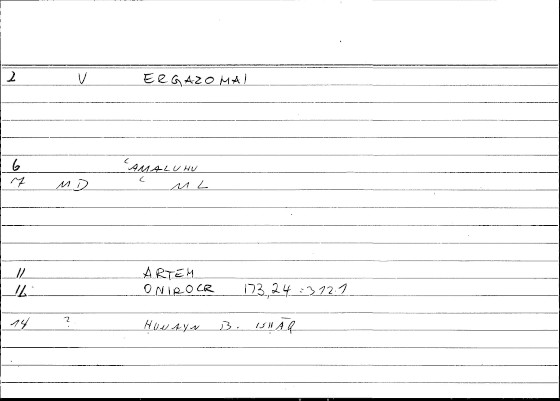 2 V ERGAZOMAI
6 ʿAMALUHU
7 MD ʿ ML
11 ARTEM
12 ONIROCR 173,24 :312.1
14 ? HUNAYN B. ISHĀQ